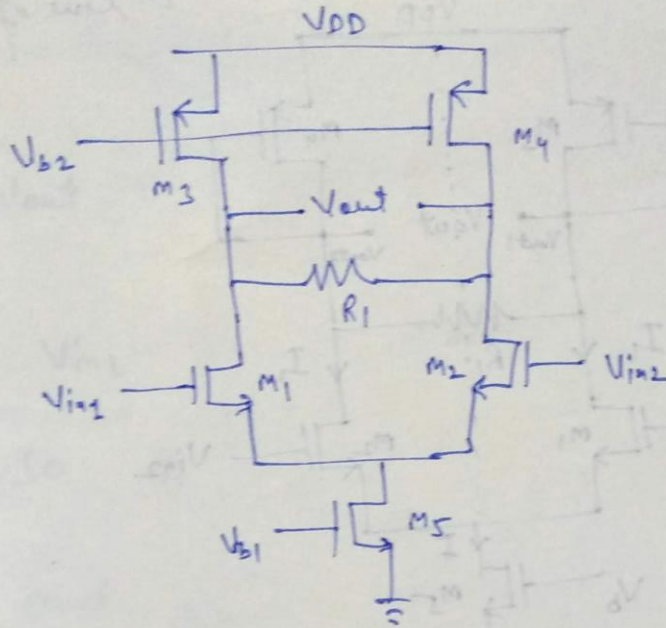 VDD
Vb2
M3
M4
Vout
R1
Vin1
M1
M2
Vin2
Vb1
M5